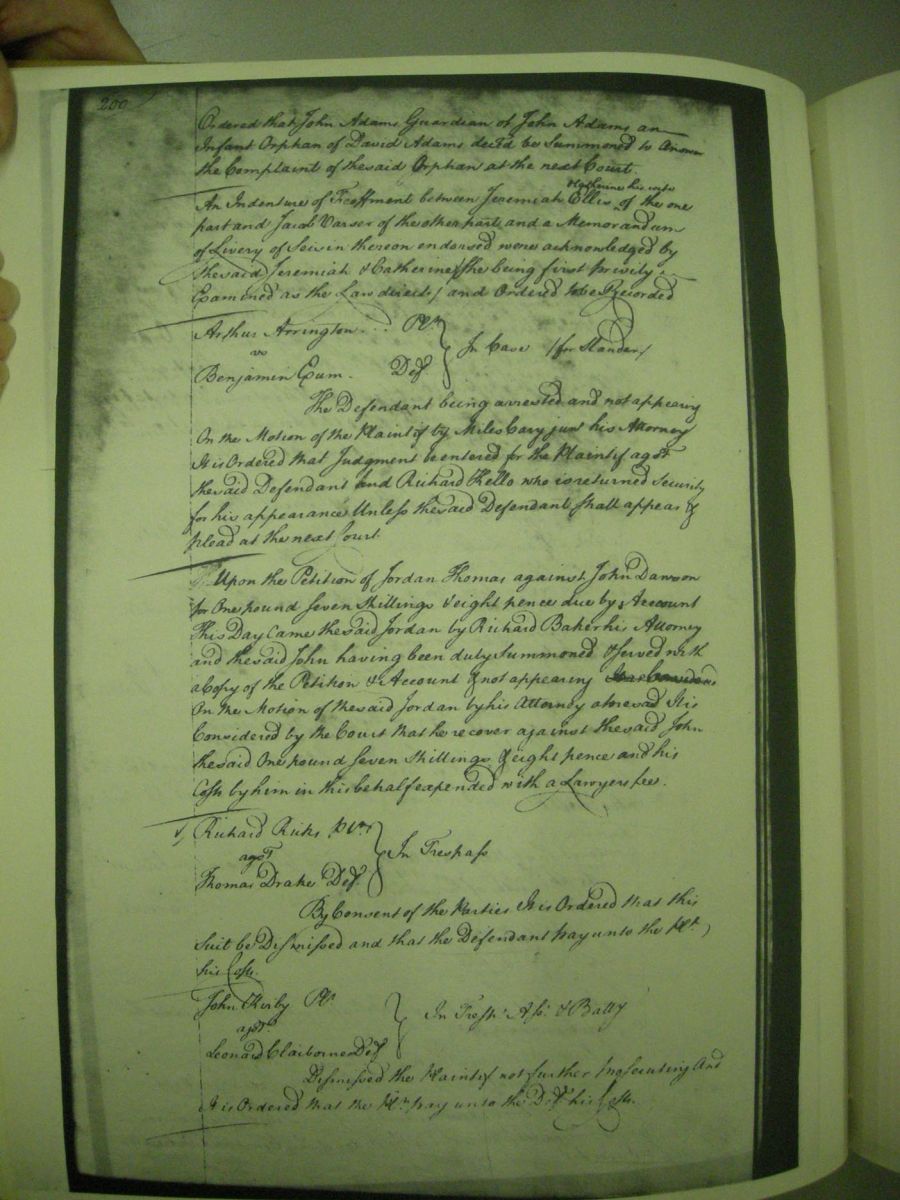 200
Ordered that John Adams Guardian of John Adams an
Infant Orphan of David Adams decd be Summoned to Answer
the Complaint of the said Orphan at the next Court.
& Catherine his wife
An Indenture of Feoffment between Jeremiah Ellis of the one
part and Jacob Varser of the other part and a Memorandum
of Livery of Seisin thereon endorsed were acknowledged by
the said Jeremiah & Catherine (She being first privily
Examined as the Law directs) and Ordered to be Recorded
Arthur Arrington Plt
vs
In Case (for Slander)
Benjamin Exum Def
The Defendant being arrested and not appearing
On the Motion of the Plaintif by Miles Cary junr his Attorney
It is Ordered that Judgment be entered for the Plaintif agst
the said Defendant and Richard Kello who is returned Security
for his appearance Unless the said Defendant shall appear &
plead at the next Court.
Upon the Petition of Jordan Thomas against John Dawson
for One pound Seven Shillings & eight pence due by Account
This Day Came the said Jordan by Richard Baker his Attorney
and the said John having been duly Summoned & Served with
a Copy of the Petition & Account & not appearing
On the Motion of the said Jordan by his Attorney aforesd It is
Considered by the Court that he recover against the said John
the said One pound Seven Shillings & eight pence and his
Costs by him in this behalf expended with a Lawyers fee.
Richard Ricks Plt
agst
In Trespass
Thomas Drake Def
By Consent of the Parties It is Ordered that this
Suit be Dismissed and that the Defendant pay unto the Plt
his Costs.
John Kirby Plt
agst
In Tress. Ass. & Batty
Leonard Claiborne Def
Dismissed the Plaintif not further prosecuting And
It is Ordered that the Plt pay unto the Deft his Costs.